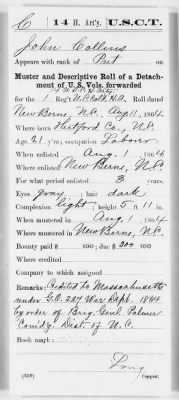 C 14 H. Art'y. U.S.C.T.
John Collins
Appears with rank of Pvt on
Muster and Descriptive Roll of a Detach-
ment of U. S. Vols. forwarded
for the 1 Reg't N.C. Cold. H.A. Roll dated
New Berne, N.C., Aug 11, 1864.
Where born Hertford Co., N.C.
Age 21 y'rs; occupation Laborer
When enlisted Aug. 1, 1864
Where enlisted New Berne, N.C.
For what period enlisted 3 years.
Eyes gray; hair dark
Complexion light; 5 ft 11 in.
When mustered in Aug. 1, 1864
Where mustered in New Berne, N.C.
Bounty paid $ 100; due $ 100
Where credited
Company to which assigned
Remarks: Credited to Massachusetts
under G.O. 227 War Dept. 1864
by order of Brig. Genl. Palmer
Com'd'g. Dist. of N.C.
Book mark:
Long
(339) Copyist.